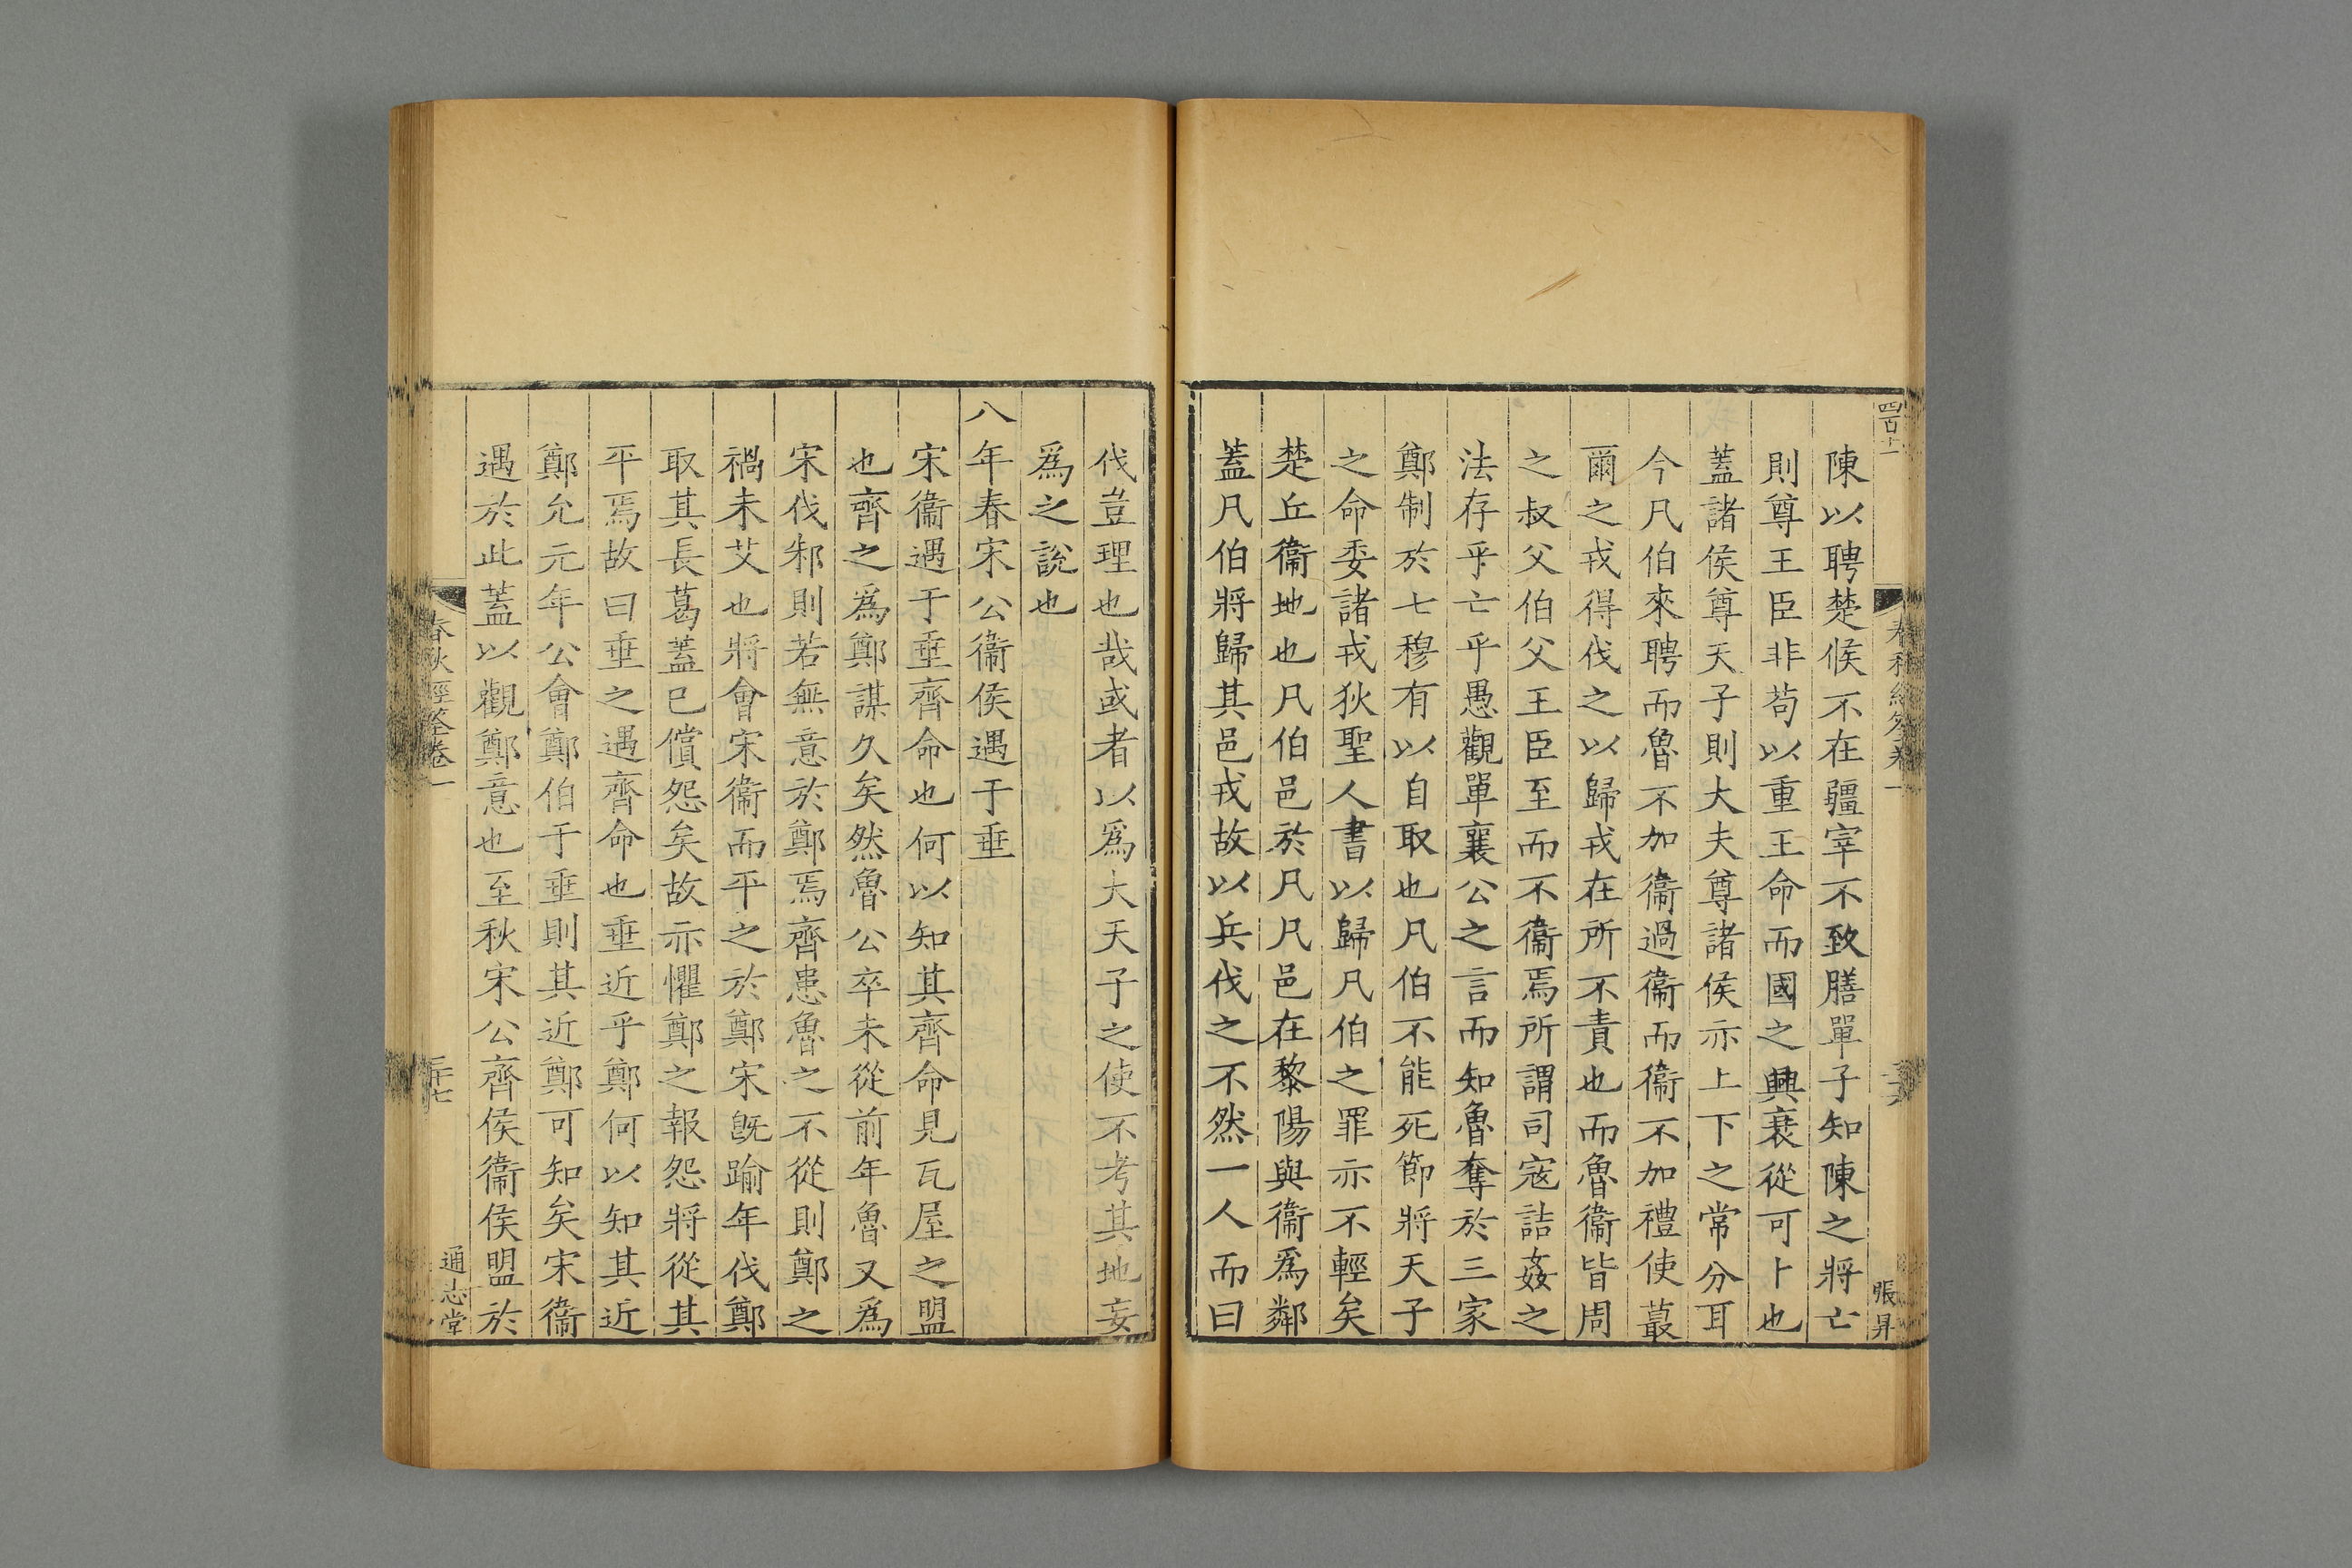 四百十一
春秋經筌卷一
張昇
陳以聘楚候不在疆宰不致膳單子知陳之將亡
則尊王臣非苟以重王命而國之興衰從可卜也
蓋諸侯尊天子則大夫尊諸侯亦上下之常分耳
今凡伯來聘而魯不加衞過衞而衞不加禮使蕞
爾之戎得伐之以歸戎在所不責也而魯衞皆周
之叔父伯父王臣至而不衞焉所謂司寇詰姦之
法存乎亡乎愚觀單襄公之言而知魯奪於三家
鄭制於七穆有以自取也凡伯不能死節將天子
之命委諸戎狄聖人書以歸凡伯之罪亦不輕矣
楚丘衞地也凡伯邑於凡凡邑在黎陽與衞爲鄰
蓋凡伯將歸其邑戎故以兵伐之不然一人而曰
代豈理也哉或者以爲大天子之使不考其地妄
爲之說也
八年春宋公衞侯遇于垂
宋衞遇于垂齊命也何以知其齊命見瓦屋之盟
也齊之爲鄭謀久矣然魯公卒未從前年魯又爲
宋伐邾則若無意於鄭焉齊患魯之不從則鄭之
禍未艾也將會宋衞而平之於鄭宋既踰年伐鄭
取其長葛蓋已償怨矣故亦懼鄭之報怨將從其
平焉故曰垂之遇齊命也垂近乎鄭何以知其近
鄭允元年公會鄭伯于垂則其近鄭可知矣宋衞
遇於此蓋以觀鄭意也至秋宋公齊侯衞侯盟於
春秋經筌卷一
二十七
通志堂